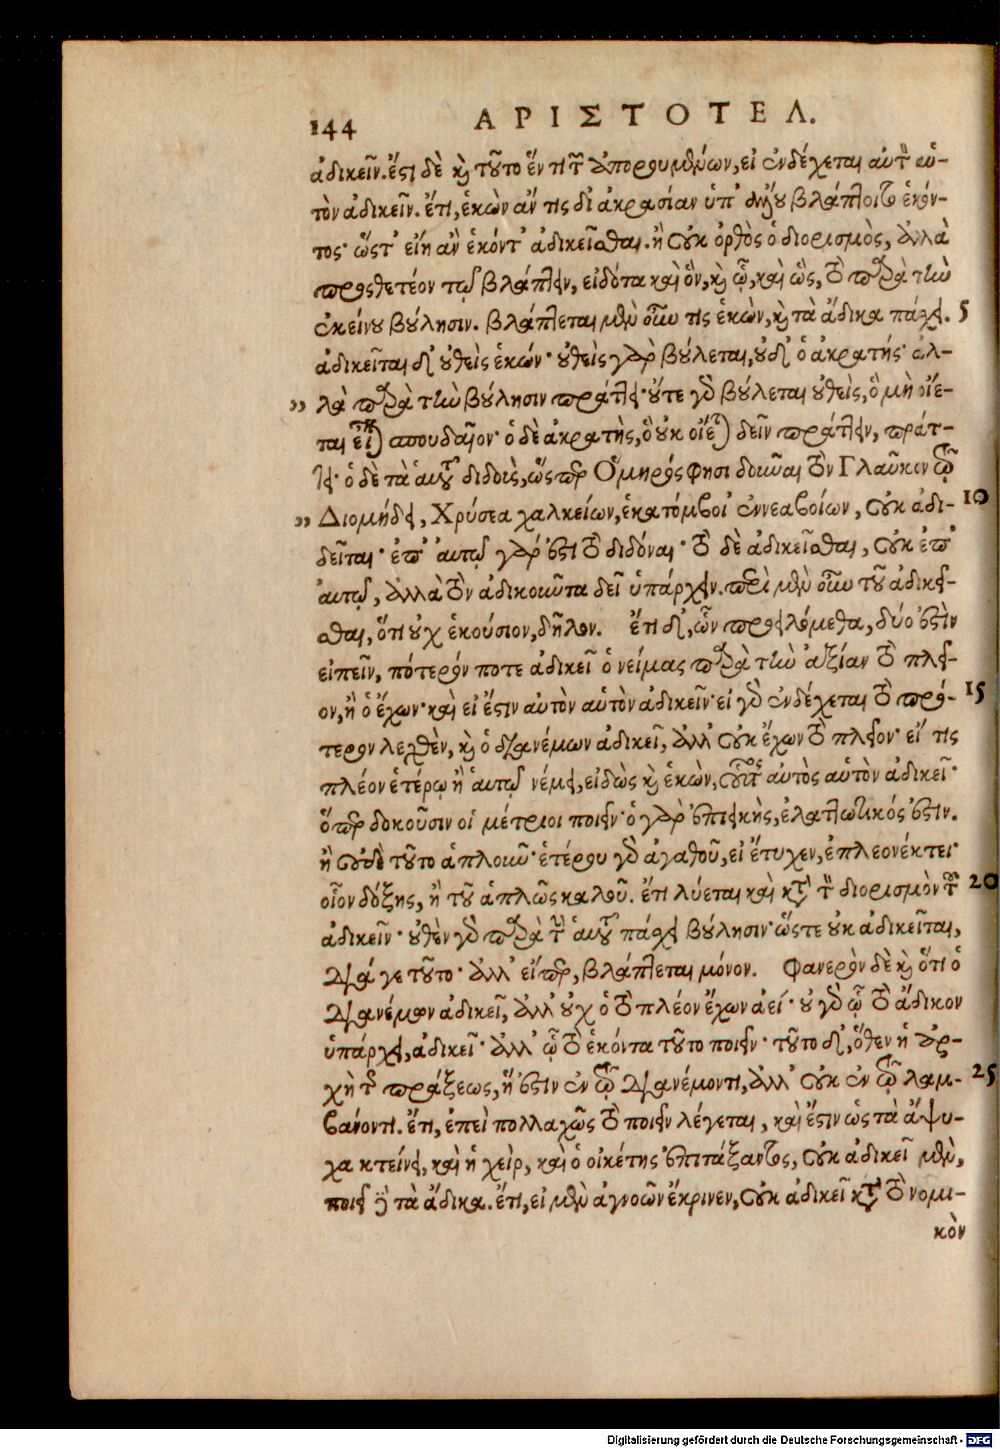 144 ΑΡΙΣΤΟΤΕΛ.
ἀδικεῖν. ἔστι δὲ καὶ τοῦτο ἕν τι τῶν ἀπορουμένων, εἰ ἐνδέχεται αὐτὸν αὑ-
τὸν ἀδικεῖν. ἔτι, ἑκὼν ἄν τις δι' ἀκρασίαν ὑπ' ἄλλου βλάπτοιτο ἑκόν-
τος· ὥστ' εἴη ἂν ἑκόντ' ἀδικεῖσθαι. ἢ οὐκ ὀρθὸς ὁ διορισμὸς, ἀλλὰ
προσθετέον τῷ βλάπτειν, εἰδότα καὶ ὃν, καὶ ᾧ, καὶ ὡς, τὸ παρὰ τὴν
ἐκείνου βούλησιν. βλάπτεται μὲν οὖν τις ἑκὼν, καὶ τὰ ἄδικα πάσχει. 5
ἀδικεῖται δ' οὐθεὶς ἑκών· οὐθεὶς γὰρ βούλεται, οὐδ' ὁ ἀκρατής· ἀλ-
„ λὰ παρὰ τὴν βούλησιν πράττει· οὔτε γὰρ βούλεται οὐθεὶς, ὃ μὴ οἴε-
ται εἶναι σπουδαῖον· ὁ δὲ ἀκρατὴς, ὃ οὐκ οἴεται δεῖν πράττειν, πράτ-
τει· ὁ δὲ τὰ αὑτοῦ διδοὺς, ὥσπερ Ὅμηρός φησι δοῦναι τὸν Γλαῦκον τῷ
„ Διομήδει, Χρύσεα χαλκείων, ἑκατόμβοι' ἐννεαβοίων, οὐκ ἀδι- 10
δεῖται· ἐπ' αὐτῷ γάρ ἐστι τὸ διδόναι· τὸ δὲ ἀδικεῖσθαι, οὐκ ἐπ'
αὐτῷ, ἀλλὰ τὸν ἀδικοῦντα δεῖ ὑπάρχειν. περὶ μὲν οὖν τοῦ ἀδικεῖ-
σθαι, ὅτι οὐχ ἑκούσιον, δῆλον. ἔτι δ', ὧν προειλόμεθα, δύο ἐστὶν
εἰπεῖν, πότερόν ποτε ἀδικεῖ ὁ νείμας παρὰ τὴν ἀξίαν τὸ πλεῖ-
ον, ἢ ὁ ἔχων· καὶ εἰ ἔστιν αὐτὸν αὑτὸν ἀδικεῖν· εἰ γὰρ ἐνδέχεται τὸ πρό- 15
τερον λεχθὲν, καὶ ὁ διανέμων ἀδικεῖ, ἀλλ' οὐκ ἔχων τὸ πλεῖον· εἴ τις
πλέον ἑτέρῳ ἢ ἑαυτῷ νέμει, εἰδὼς καὶ ἑκὼν, οὗτος αὐτὸς αὑτὸν ἀδικεῖ·
ὅπερ δοκοῦσιν οἱ μέτριοι ποιεῖν· ὁ γὰρ ἐπιεικὴς, ἐλαττωτικός ἐστιν.
ἢ οὐδὲ τοῦτο ἁπλοῦν· ἑτέρου γὰρ ἀγαθοῦ, εἰ ἔτυχεν, ἐπλεονέκτει·
οἷον δόξης, ἢ τοῦ ἁπλῶς καλοῦ. ἔτι λύεται καὶ κατὰ τὸν διορισμὸν τοῦ 20
ἀδικεῖν· οὐθὲν γὰρ παρὰ τὴν αὑτοῦ πάσχει βούλησιν· ὥστε οὐκ ἀδικεῖται,
διά γε τοῦτο· ἀλλ' εἴπερ, βλάπτεται μόνον. Φανερὸν δὲ καὶ ὅτι ὁ
διανέμων ἀδικεῖ, ἀλλ' οὐχ ὁ τὸ πλέον ἔχων ἀεί· οὐ γὰρ ᾧ τὸ ἄδικον
ὑπάρχει, ἀδικεῖ· ἀλλ' ᾧ τὸ ἑκόντα τοῦτο ποιεῖν· τοῦτο δ', ὅθεν ἡ ἀρ-
χὴ τῆς πράξεως, ἥ ἐστιν ἐν τῷ διανέμοντι, ἀλλ' οὐκ ἐν τῷ λαμ- 25
βάνοντι. ἔτι, ἐπεὶ πολλαχῶς τὸ ποιεῖν λέγεται, καὶ ἔστιν ὡς τὰ ἄψυ-
χα κτείνει, καὶ ἡ χεὶρ, καὶ ὁ οἰκέτης ἐπιτάξαντος, οὐκ ἀδικεῖ μὲν,
ποιεῖ δὲ τὰ ἄδικα. ἔτι, εἰ μὲν ἀγνοῶν ἔκρινεν, οὐκ ἀδικεῖ κατὰ τὸ νομι-
κὸν
Digitalisierung gefördert durch die Deutsche Forschungsgemeinschaft - DFG